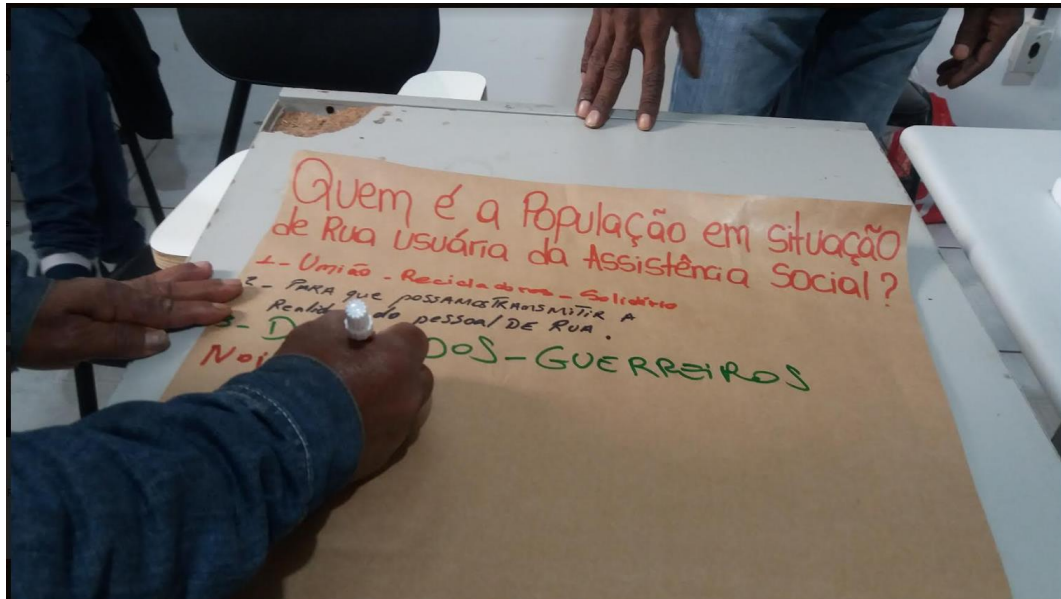 Quem é a População em situação
de Rua usuária da Assistência Social?
1- União - Recicladores - Solidário
2- PARA que possamos TRANSMITIR A
do pessoal DE RUA.
3- GUERREIROS